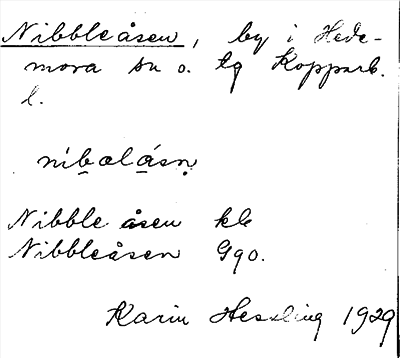 Nibbleåsen, by i Hede-
mora sn o. tg Kopparb.
l.
nibəlåsn
Nibble åsen kk
Nibbleåsen Gqo.
Karin Hessling 1929